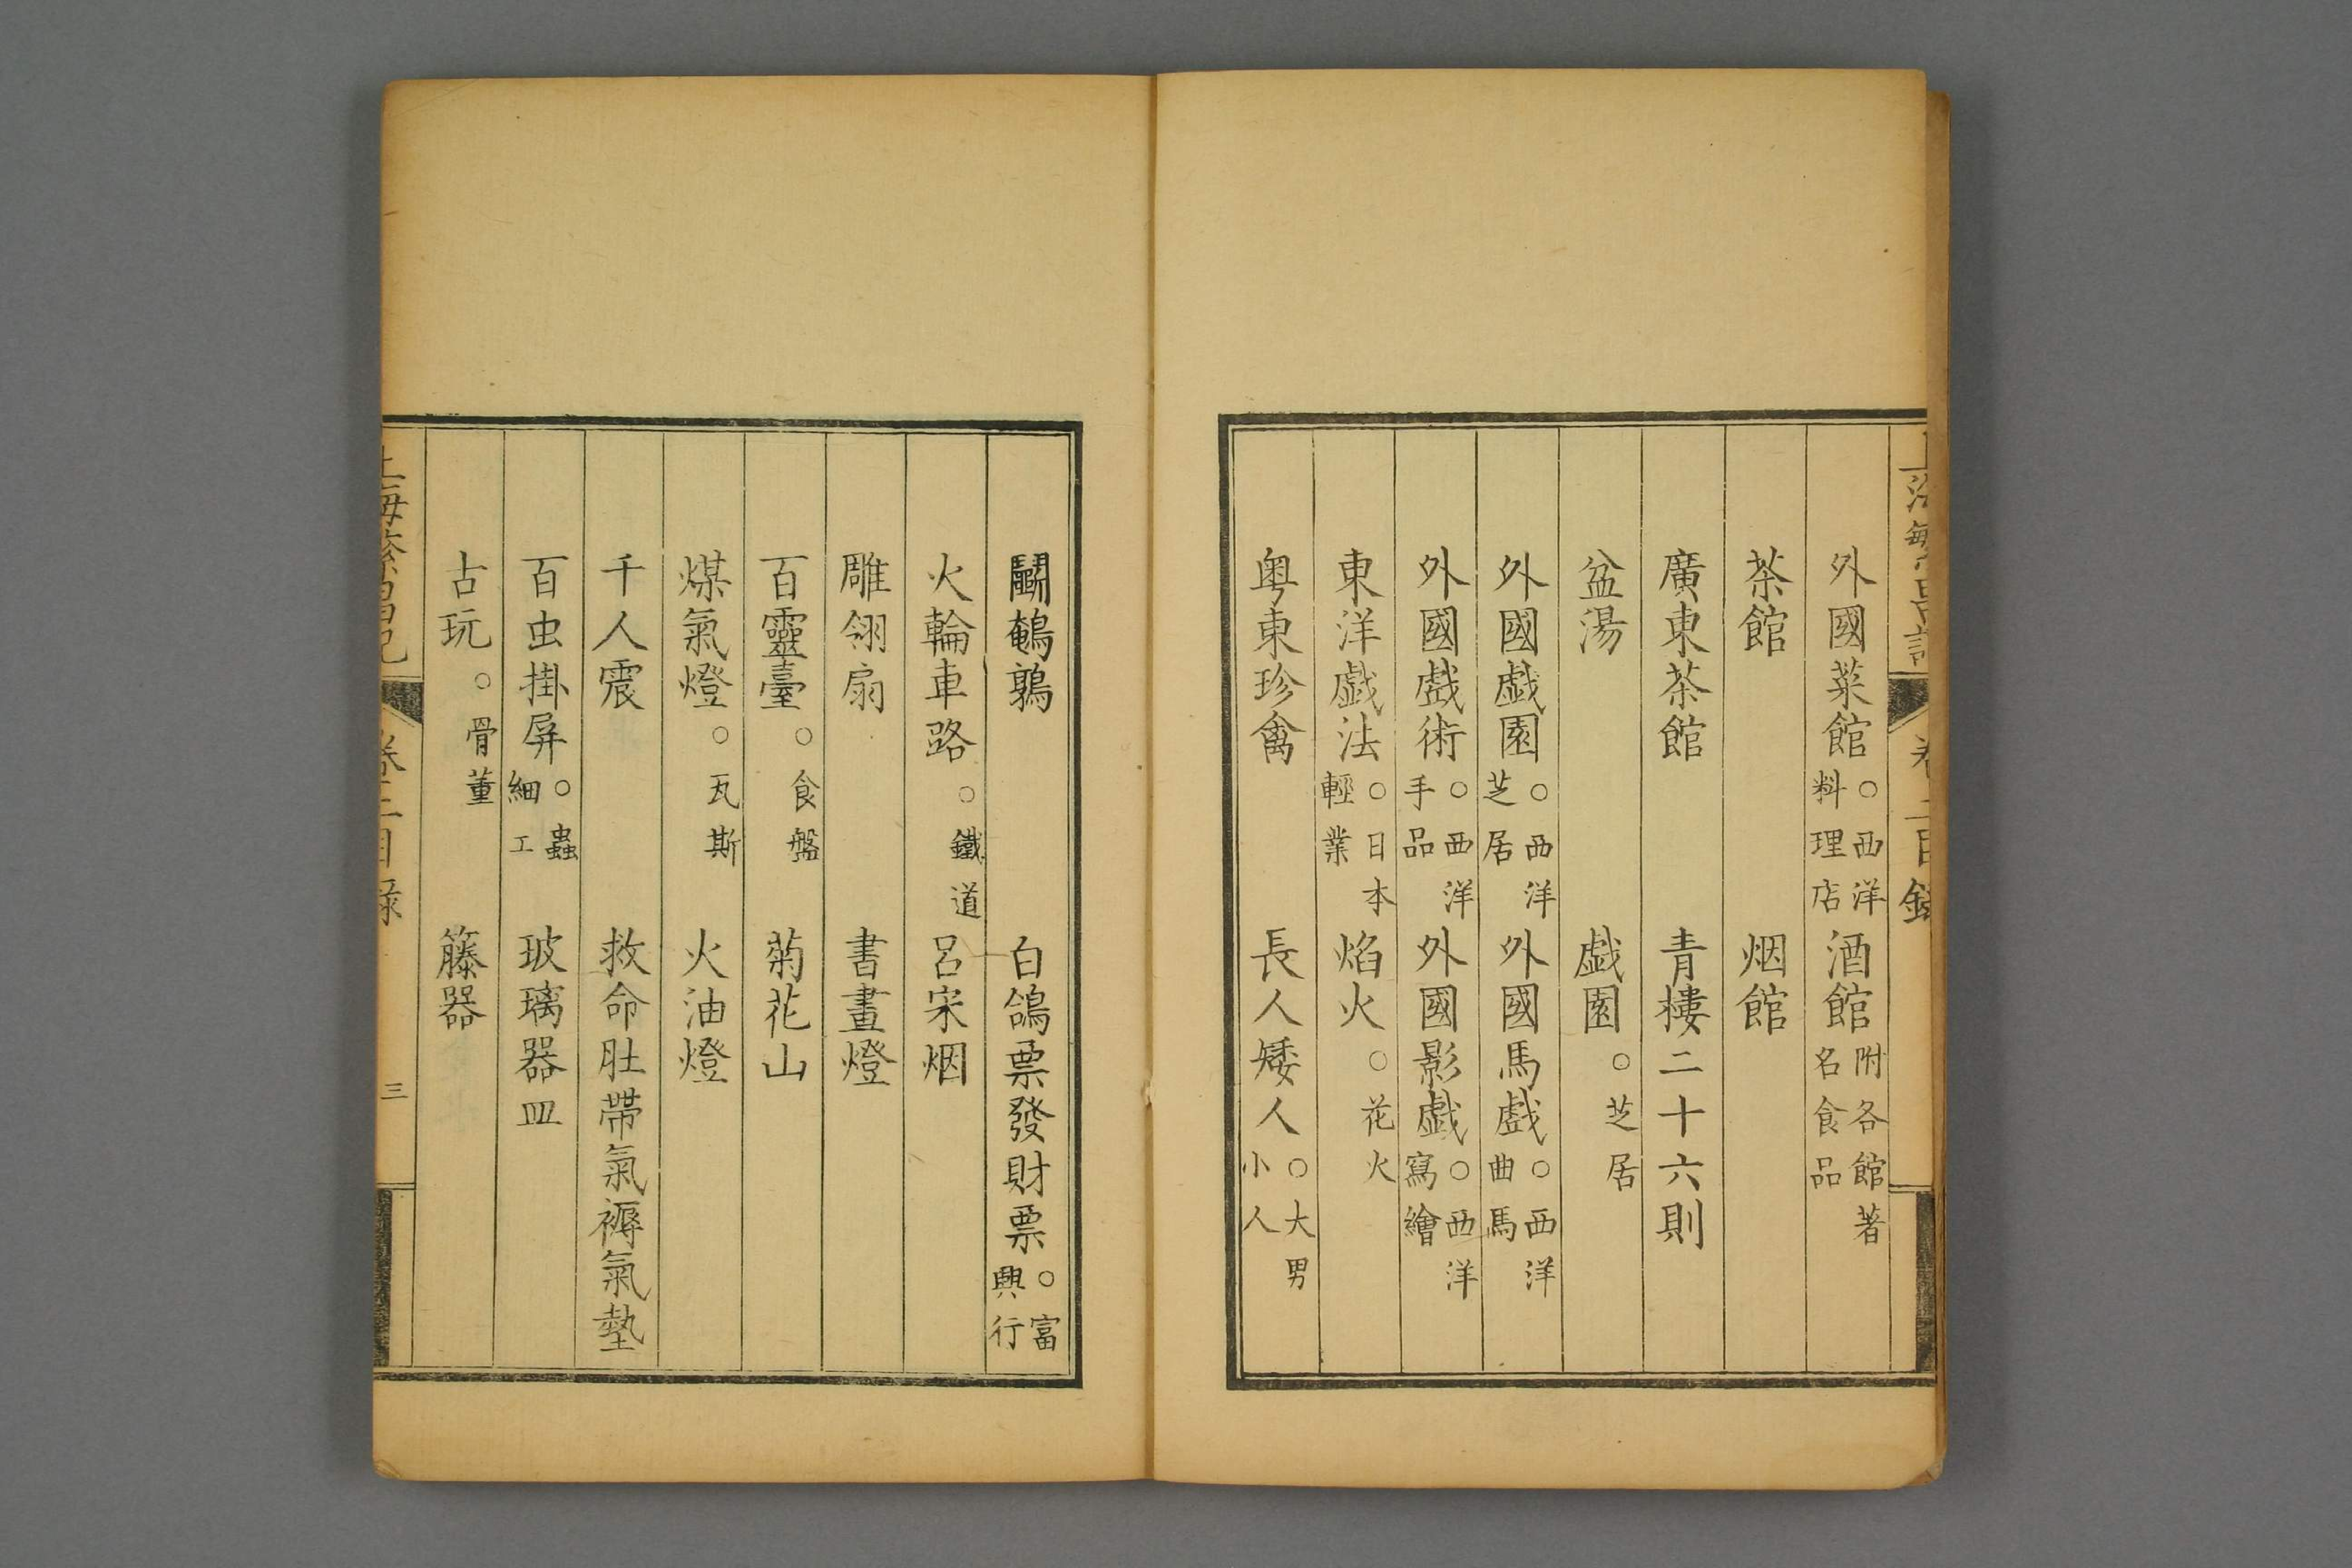 外國菜館○西洋料理店 酒館附各館著名食品
茶館 烟館
廣東茶館 青樓二十六則
盆湯 戯園○芝居
外國戯園○西洋芝居 外國馬戯○西洋曲馬
外國戯術○西洋手品 外國影戯○西洋寫繪
東洋戯法○日本輕業 焰火○花火
粤東珍禽 長人矮人○大男小人
鬭鵪鶉 白鴿票發財票○富興行
火輪車路○鐵道 呂宋烟
雕翎扇 書畫燈
百靈臺○食盤 菊花山
煤氣燈○瓦斯 火油燈
千人震 救命肚帶氣褥氣墊
百虫掛屏○蟲細工 玻璃器皿
古玩○骨董 籐器
上海繁昌記 卷二目録 三